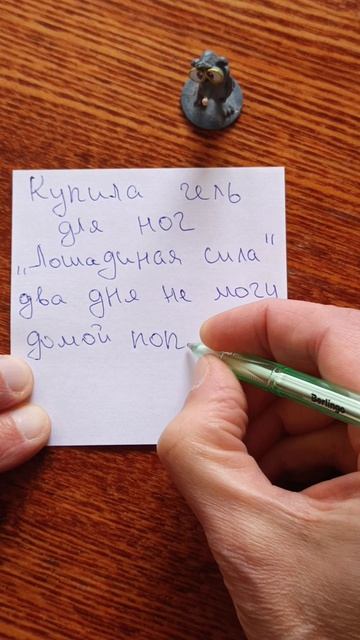 Купила гель
для ног
„Лошадиная сила"
два дня не могу
домой поп
Berlingo